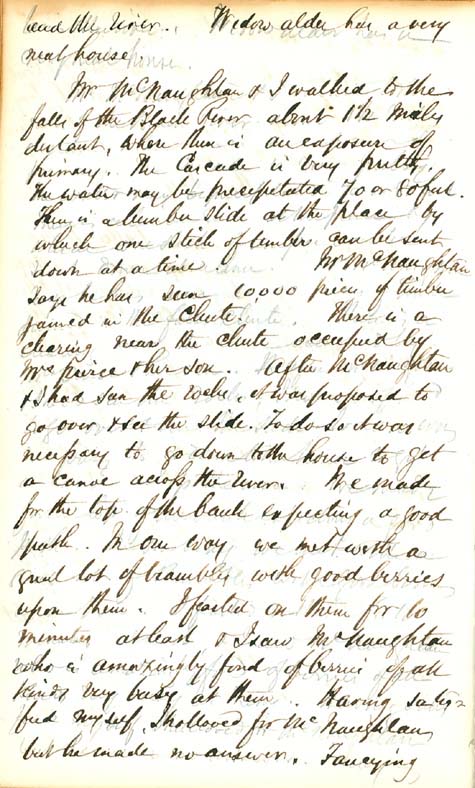 head the river. Widow alder has a very
neat house.
Mr McNaughtan & I walked to the
falls of the Black River about 1½ miles
distant, where there is an exposure of
primary. The Cascade is very pretty.
The water may be precipitated 70 or 80 feet.
There is a lumber slide at the place by
which one stick of timber can be sent
down at a time. Mr McNaughtan
says he has seen 10,000 pieces of timber
jamed in the Chute. There is a
clearing near the chute occupied by
Mrs pierce & her son. After McNaughtan
& I had seen the rocks, it was proposed to
go over & see the slide. To do so it was
necessary to go down to the house to get
a canoe across the river. We made
for the top of the bank expecting a good
path. In our way we met with a
great lot of brambles with good berries
upon them. I feasted on them for 10
minutes at least & I saw McNaughtan
who is amazingly fond of berries of all
kinds very busy at them. Having satis-
fied myself, I holloed for McNaughtan,
but he made no answer. Fancying